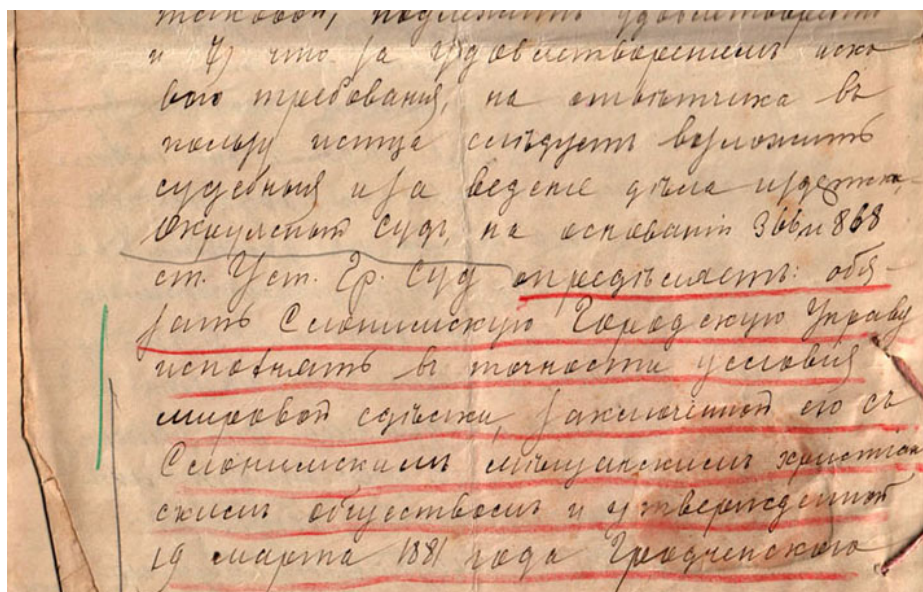 таковой, подлежитъ удовлетворенiю
и 7) что за удовлетворенiемъ иско
ваго требованiя, на ответчика въ
пользу истца слѣдуетъ возложить
судебныя и за веденiе дѣла издержки,
Окружный Судъ, на основанiи 366 и 868
ст. Уст. Гр. Суд опредѣляетъ: обя-
зать Слонимскую Городскую Управу
исполнять въ точности условiя
мировой сдѣлки, заключенной ею съ
Слонимскимъ мѣщанскимъ христiан
скимъ обществомъ и утвержденной
19 марта 1881 года Гродненскаго